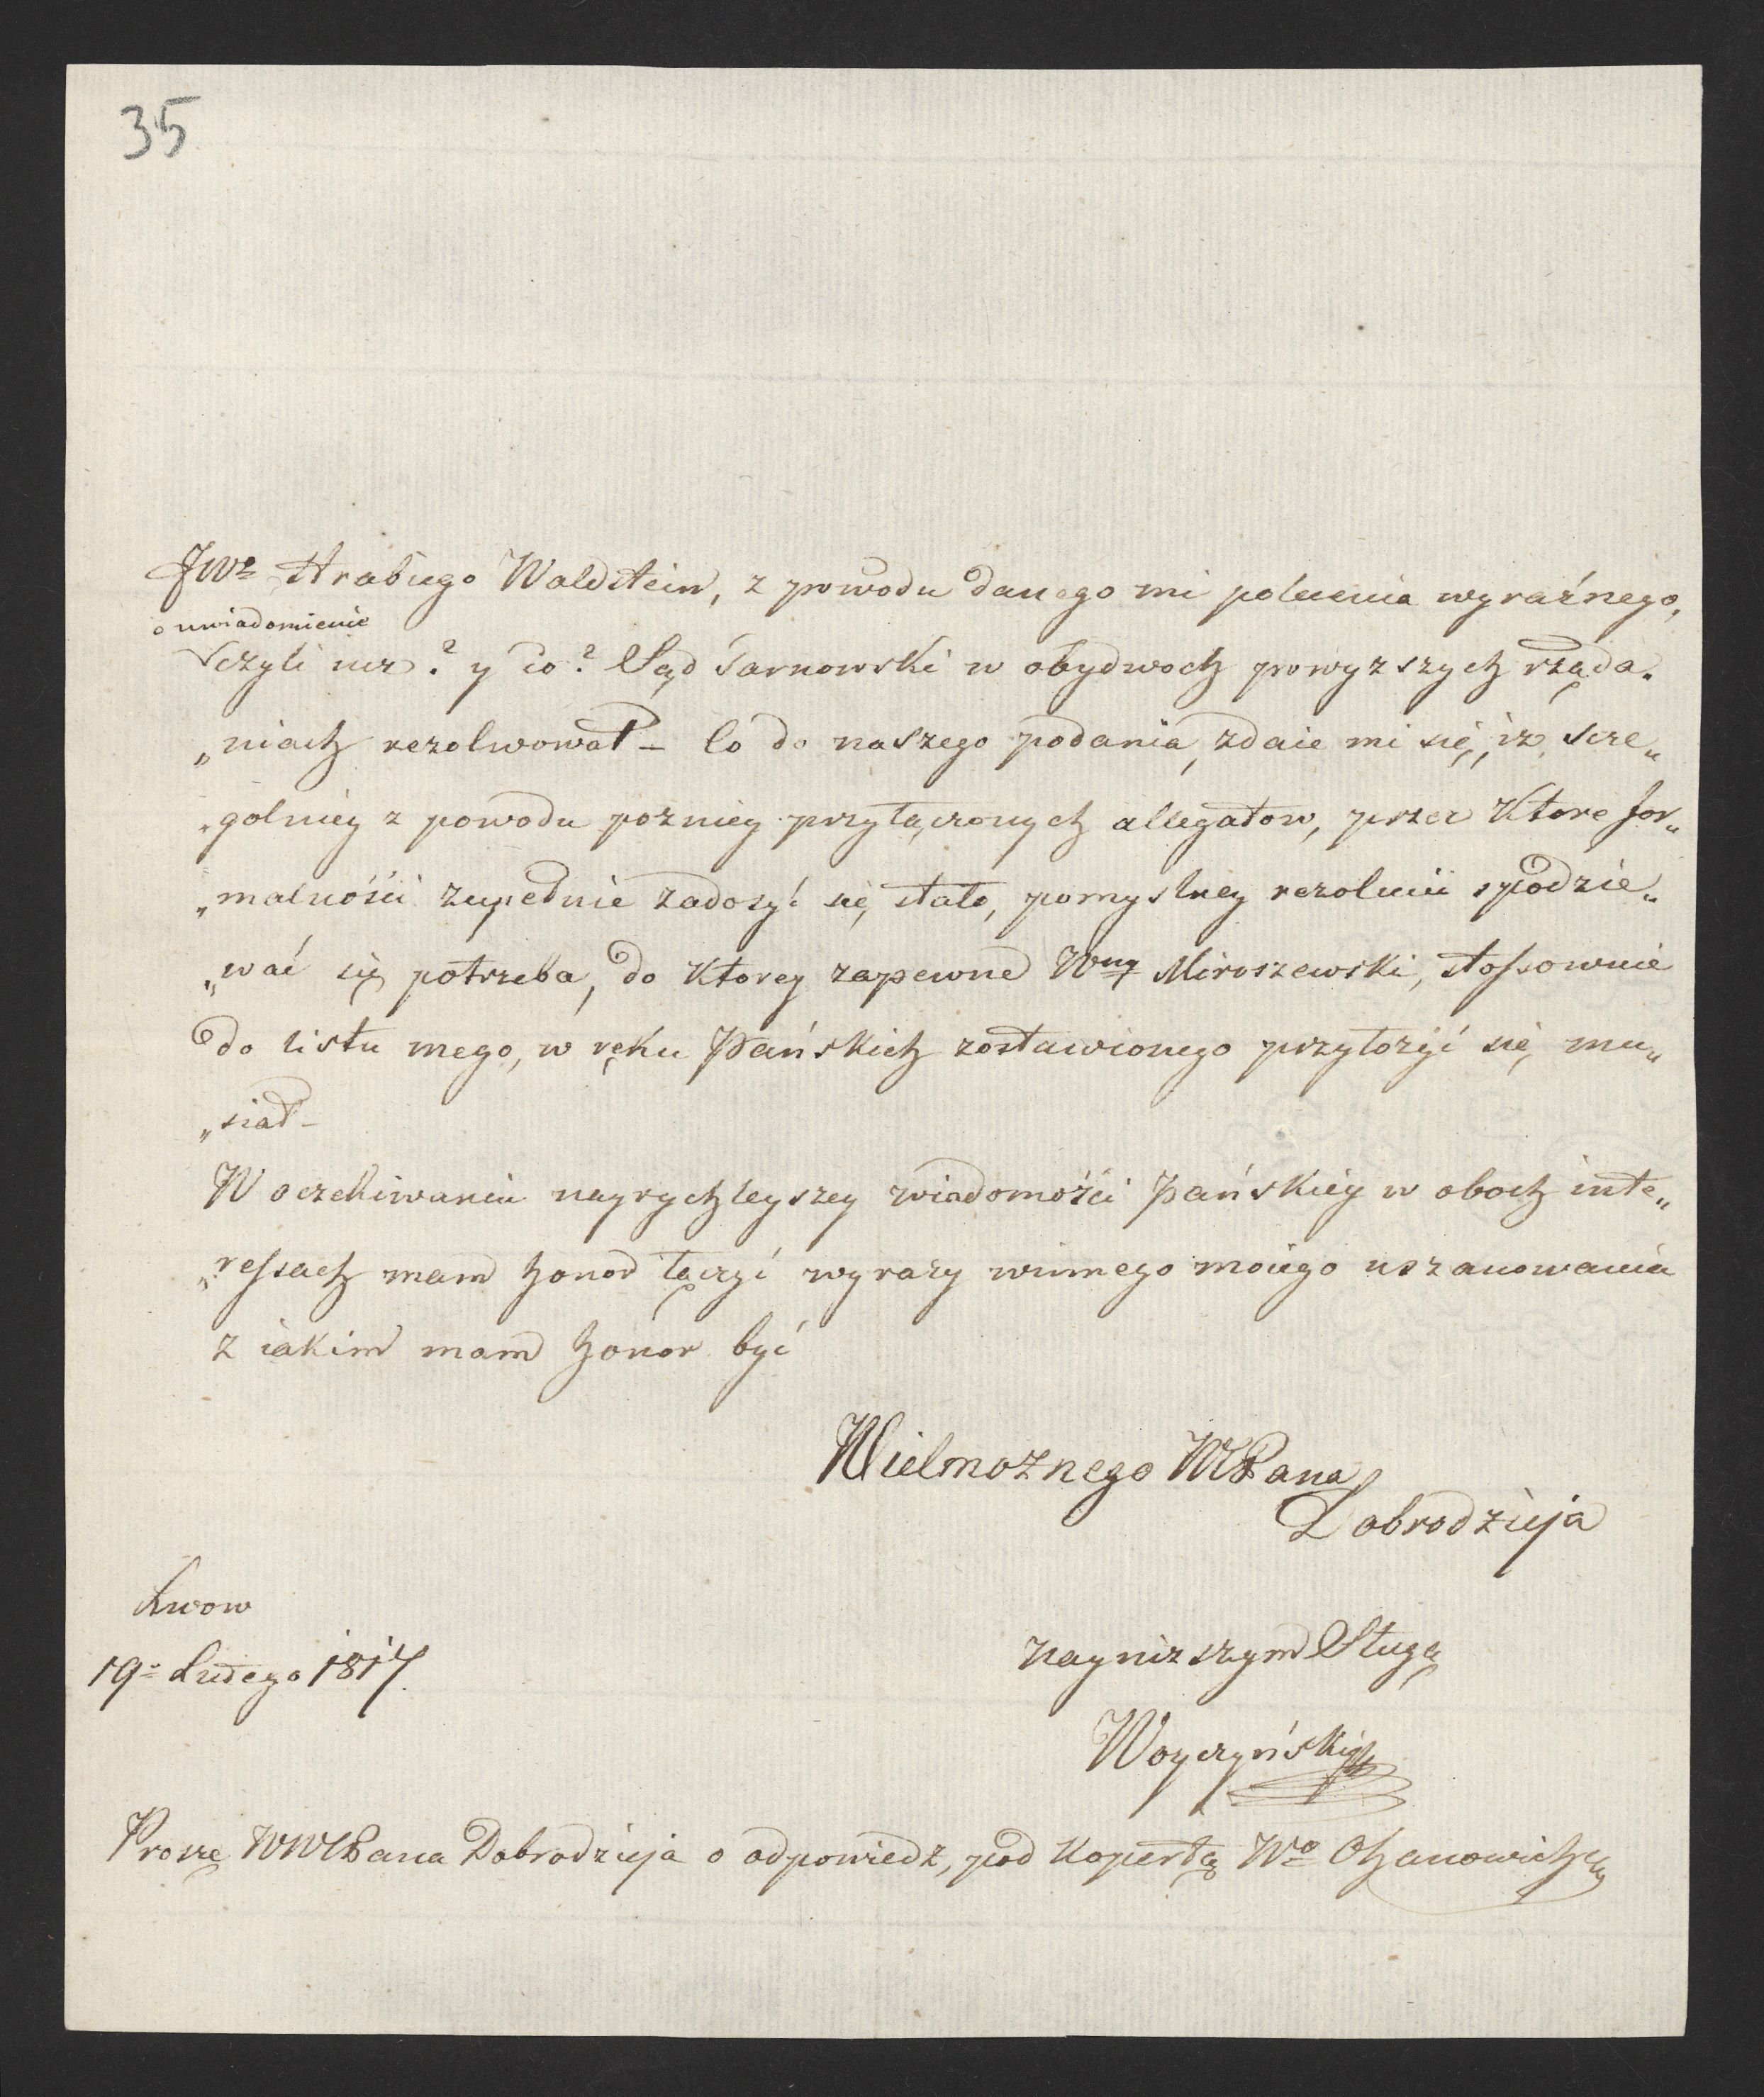 35
JWo Hrabiego Waldstein, z powodu danego mi polecenia wyraźnego,
o uwiadomienie
czyli iuz? y co? Sąd Tarnowski w obydwoch powyzszych rząda„
„niach rezolwował – Co do naszego podania, zdaie mi się, iz, szcze„
„golniey z powodu pozniey przyłączonych allegatow, przez Ktore for„
„malności zupełnie zadosyć się stało, pomyslney rezolucii spodzie„
„wać się potrzeba, do Ktorey zapewne Wny Miroszewski, stossownie
do listu mego, w ręku Pańskich zostawionego przyłozyć się mu„
„siał –
W oczekiwaniu nayrychleyszey wiadomości Pańskiey w oboch inte„
„ressach mam honor łączyć wyrazy winnego moiego uszanowania
z iakim mam honor być
Wielmożnego WPana
Dobrodzieja
Lwow
19o Lutego 1817.
naynizszym Sługą
Woyczyński
Proszę WWPana Dobrodzieja o odpowiedz, pod Kopertą Wo